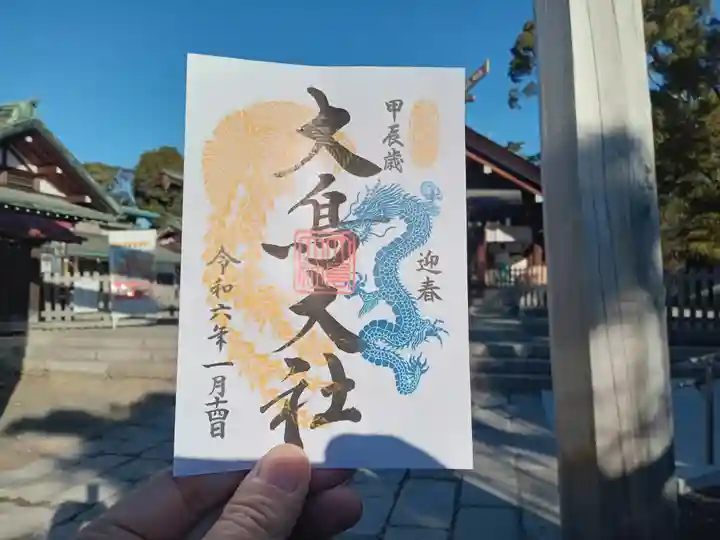 甲辰歳
迎春
大鳥大社
令和六年一月十四日